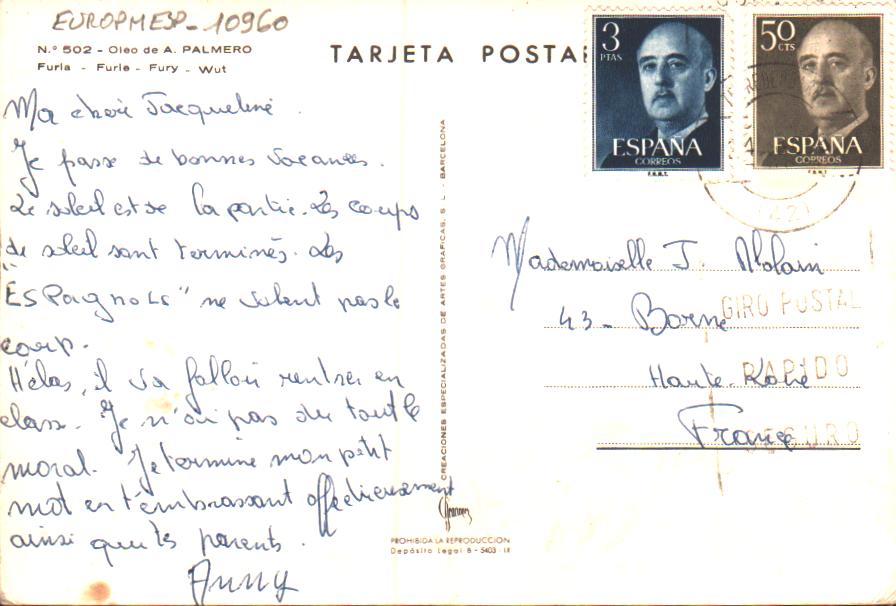 EUROPMESP-10960
N.º 502 - Oleo de A. PALMERO
Furia - Furie - Fury - Wut
TARJETA POSTAL
3
PTAS
ESPAÑA
CORREOS
F.N.M.T.
50
CTS
ESPAÑA
CORREOS
F.N.M.T.
Ma chère Jacqueline
Je passe de bonnes vacances.
Le soleil est de la partie. Les coups
de soleil sont terminés. Les
"ESPagnoLs" ne valent pas le
coup.
Hélas, il va falloir rentrer en
class. Je n'ai pas du tout le
moral. Je termine mon petit
mot en t'embrassant affectueusement
ainsi que tes parents.
Anny
CREACIONES ESPECIALIZADAS DE ARTES GRAFICAS, S. L. - BARCELONA
PROHIBIDA LA REPRODUCCION
Depósito Legal B - 5403 - IX
Mademoiselle J.
43 - Borne
Haute-Loire
France
GIRO POSTAL
RAPIDO
SEGURO